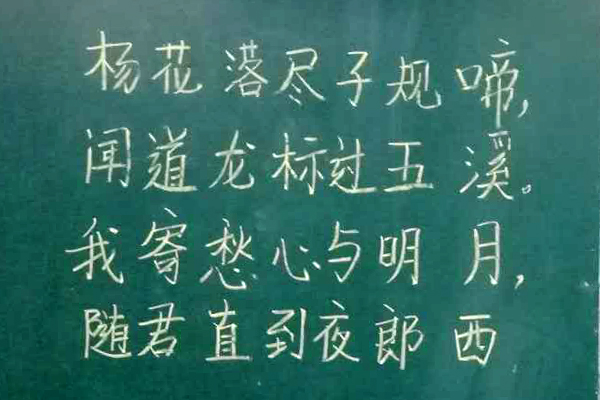 杨花落尽子规啼,
闻道龙标过五溪。
我寄愁心与明月,
随君直到夜郎西